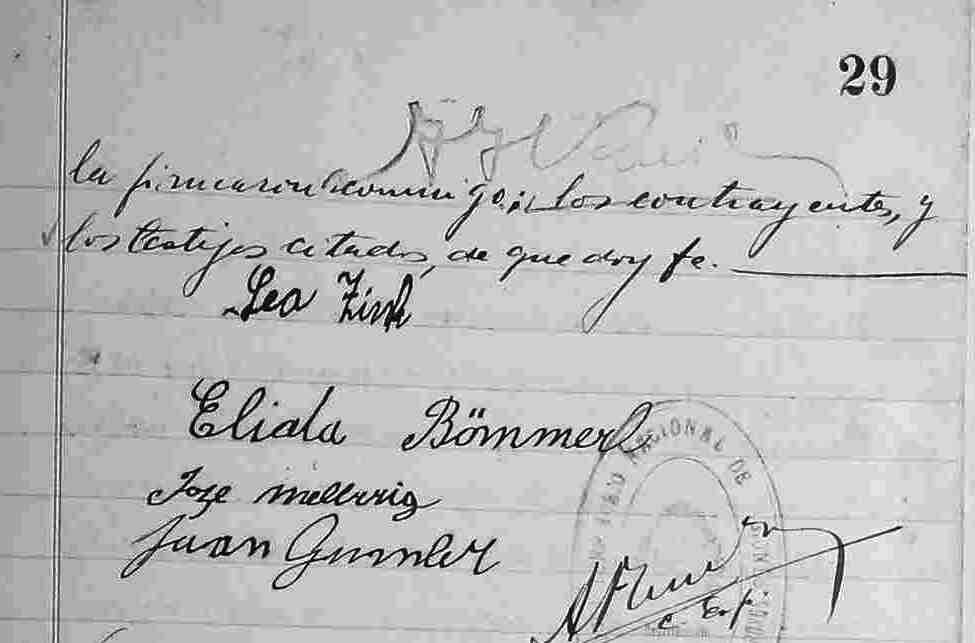 29
la firmaron conmigo; los contrayentes, y
los testigos citados, de que doy fe.
Leo Zink
Eliala Bömmerl
Jose
Juan Gumler
NACIONAL DE